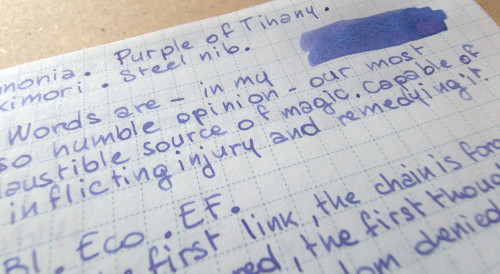 Purple of Tihany.
Steel nib.
Words are - in my
so humble opinion - our most
source of magic. capable of
inflicting injury and remedying it.
BI. Eco. EF.
first link, the chain is
, the first
denied